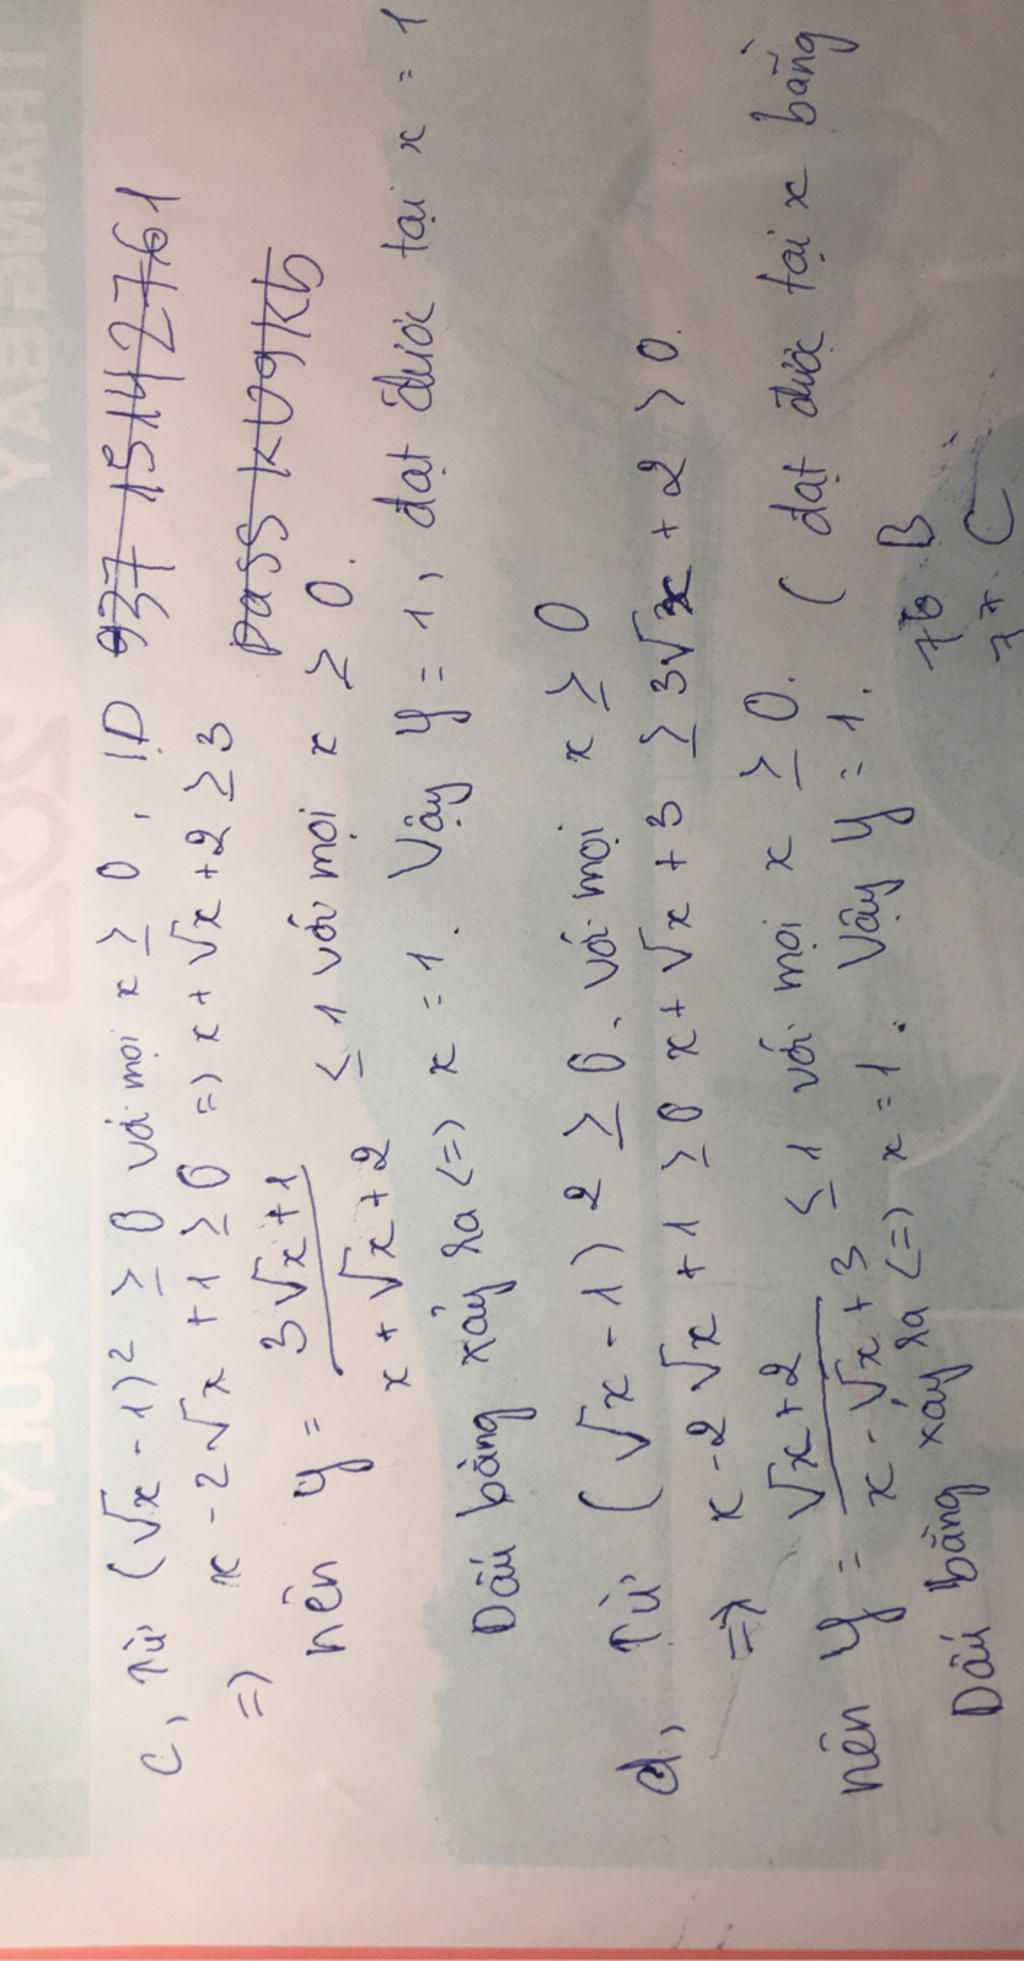 c, Từ (√x - 1)² ≥ 0 với mọi x ≥ 0, ID 937 1514 2761
=> x - 2√x + 1 ≥ 0 => x + √x + 2 ≥ 3 pass kU9Kb
nên y = (3√x + 1)/(x + √x + 2) ≤ 1 với mọi x ≥ 0.
Dấu bằng xảy ra <=> x = 1. Vậy y = 1, đạt được tại x = 1
d, Từ (√x - 1) 2 ≥ 0. với mọi x ≥ 0
=> x - 2√x + 1 ≥ 0 x + √x + 3 ≥ 3√x + 2 > 0.
nên y = (√x + 2)/(x - √x + 3) ≤ 1 với mọi x ≥ 0. ( đạt được tại x bằng
Dấu bằng xảy ra <=> x = 1. Vậy y = 1.
76 B
77 C